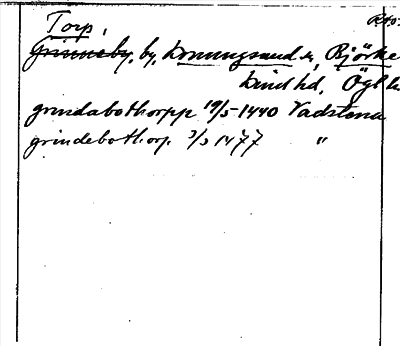 Torp,
Grinneby, by, Konungsund sn, Björke
kind hd, Ögl
grindabothorpp 19/5 1440 Vadstena
grindebothorp 3/3 1477 "